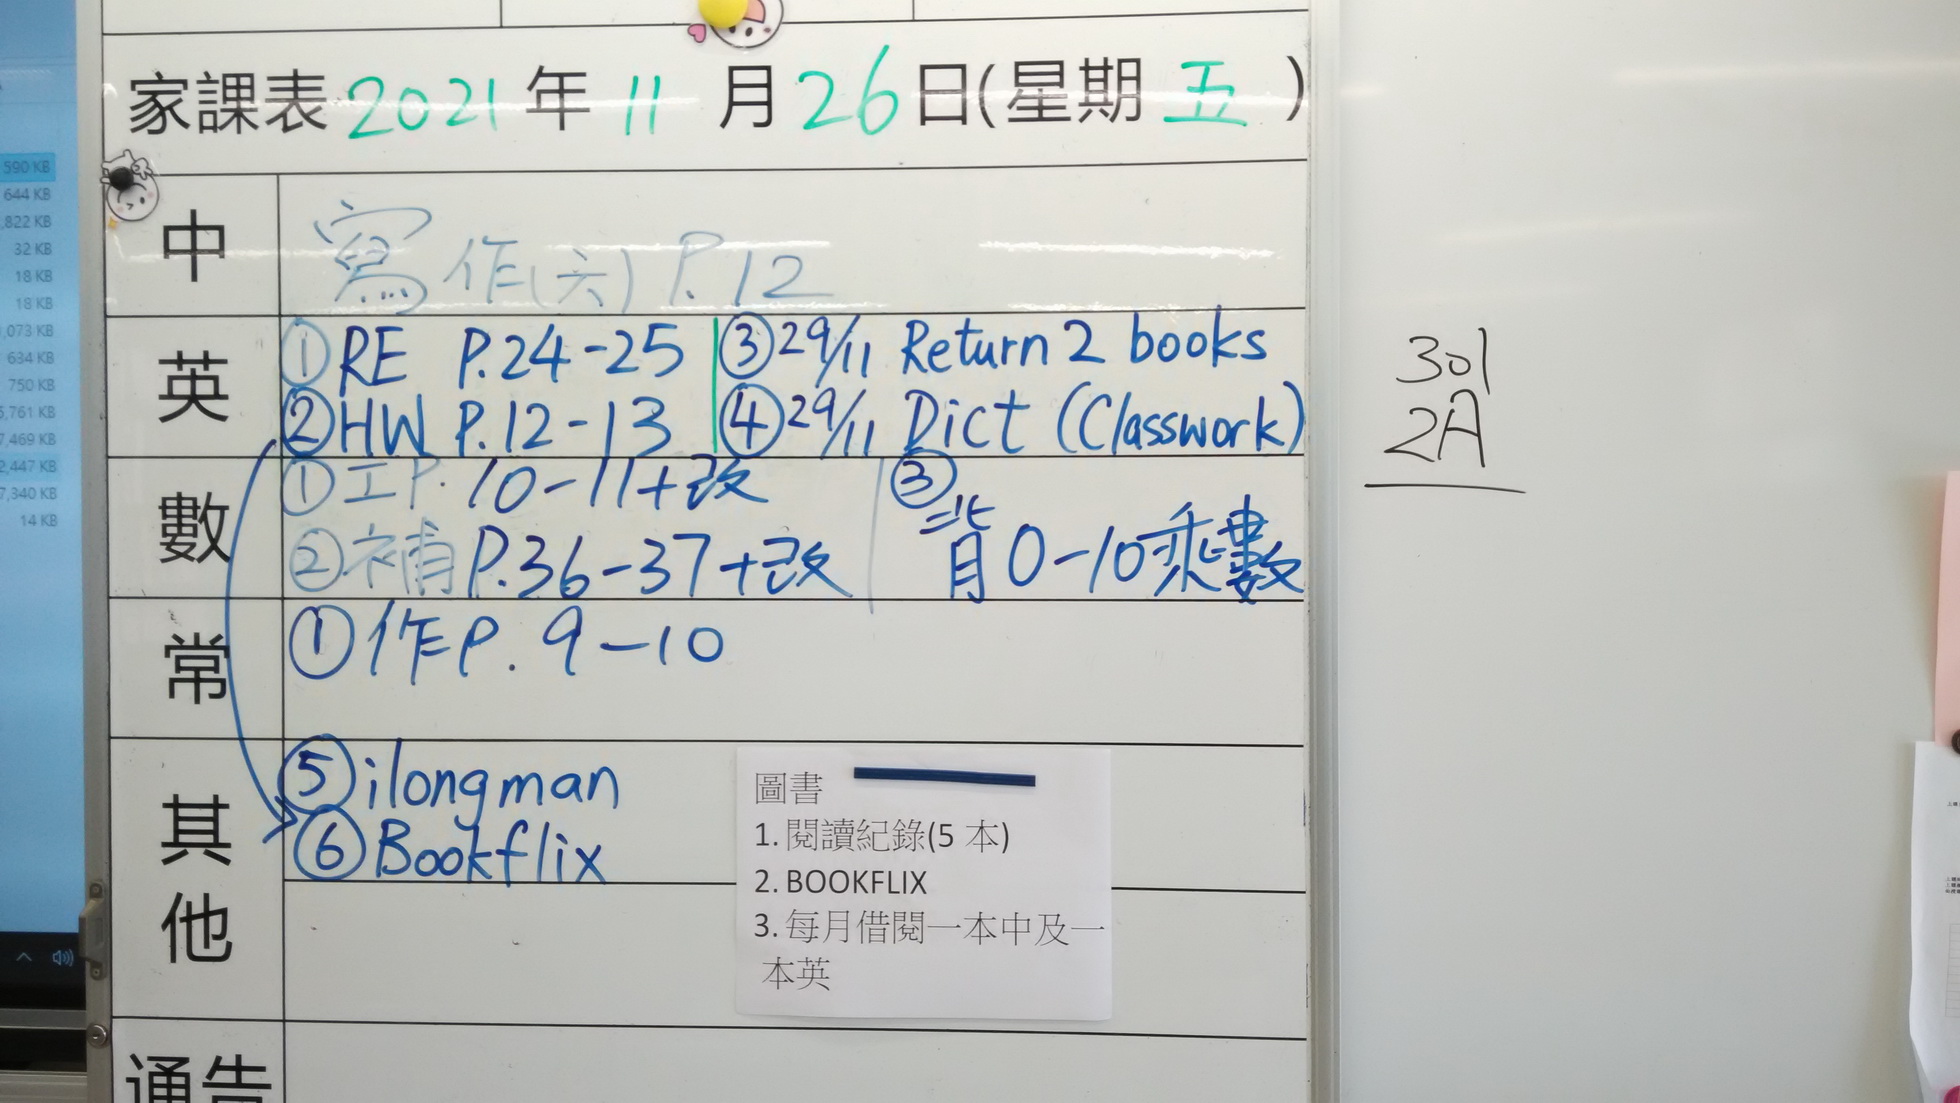 家課表 2021 年 11 月 26 日(星期 五 )
中
寫作(六) P.12
英
① RE P.24-25
② HW P.12-13
③ 29/11 Return 2 books
④ 29/11 Dict (Classwork)
數
① 工P. 10-11+改
② 補 P.36-37+改
③ 背 0-10 乘數
常
① 作P. 9-10
其他
⑤ ilongman
⑥ Bookflix
圖書
1. 閱讀紀錄(5 本)
2. BOOKFLIX
3. 每月借閱一本中及一
本英
通告
301
2A
590 KB
644 KB
,822 KB
32 KB
18 KB
18 KB
,073 KB
634 KB
750 KB
5,761 KB
7,469 KB
2,447 KB
7,340 KB
14 KB